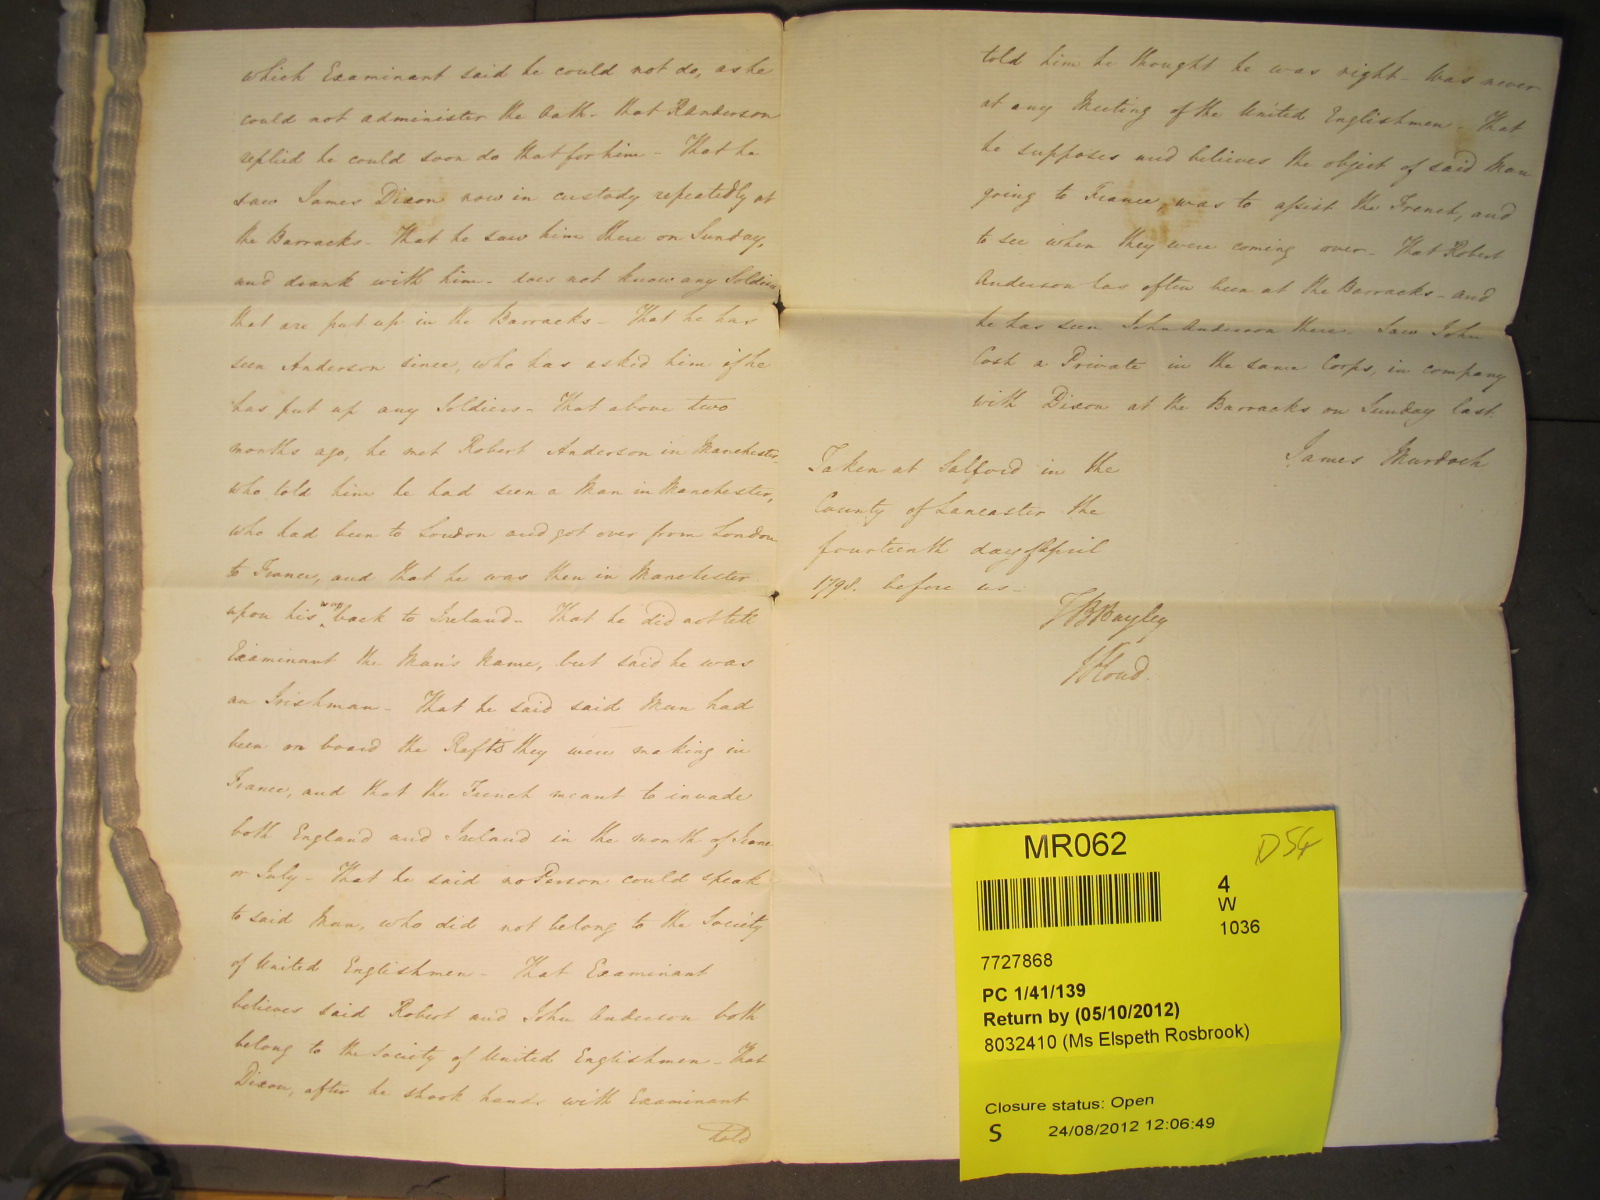 which Examinant said he could not do, as he
could not administer the Oath - that R Anderson
replied he could soon do that for him - That he
saw James Dixon now in custody repeatedly at
the Barracks - That he saw him there on Sunday,
and drank with him - does not know any Soldiers
that are put up in the Barracks - That he has
seen Anderson since, who has asked him if he
has put up any Soldiers - That above two
months ago, he met Robert Anderson in Manchester,
who told him he had seen a Man in Manchester,
who had been to London and got over from London
to France, and that he was then in Manchester
upon his way back to Ireland - That he did not tell
Examinant the Man's Name, but said he was
an Irishman - That he said said Man had
been on board the Rafts they were making in
France, and that the French meant to invade
both England and Ireland in the month of June
or July - That he said no Person could speak
to said Man, who did not belong to the Society
of United Englishmen - That Examinant
believes said Robert and John Anderson both
belong to the Society of United Englishmen - That
Dixon, after he shook hands with Examinant
told
told him he thought he was right - Was never
at any Meeting of the United Englishmen - That
he supposes and believes the object of said Man
going to France, was to assist the French, and
to see when they were coming over - That Robert
Anderson has often been at the Barracks - and
he has seen John Anderson there. Saw John
Cosh a Private in the same Corps, in company
with Dixon at the Barracks on Sunday last.
James Murdoch
Taken at Salford in the
County of Lancaster the
fourteenth day of April
1798. before us -
T B Bayley
MR062
D54
4
W
1036
7727868
PC 1/41/139
Return by (05/10/2012)
8032410 (Ms Elspeth Rosbrook)
Closure status: Open
S 24/08/2012 12:06:49